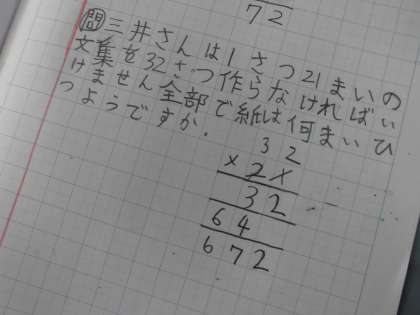 72
問 三井さんは1さつ21まいの
文集を32さつ作らなければい
けません全部で紙は何まいひ
つようですか.
32
×21
32
64
672